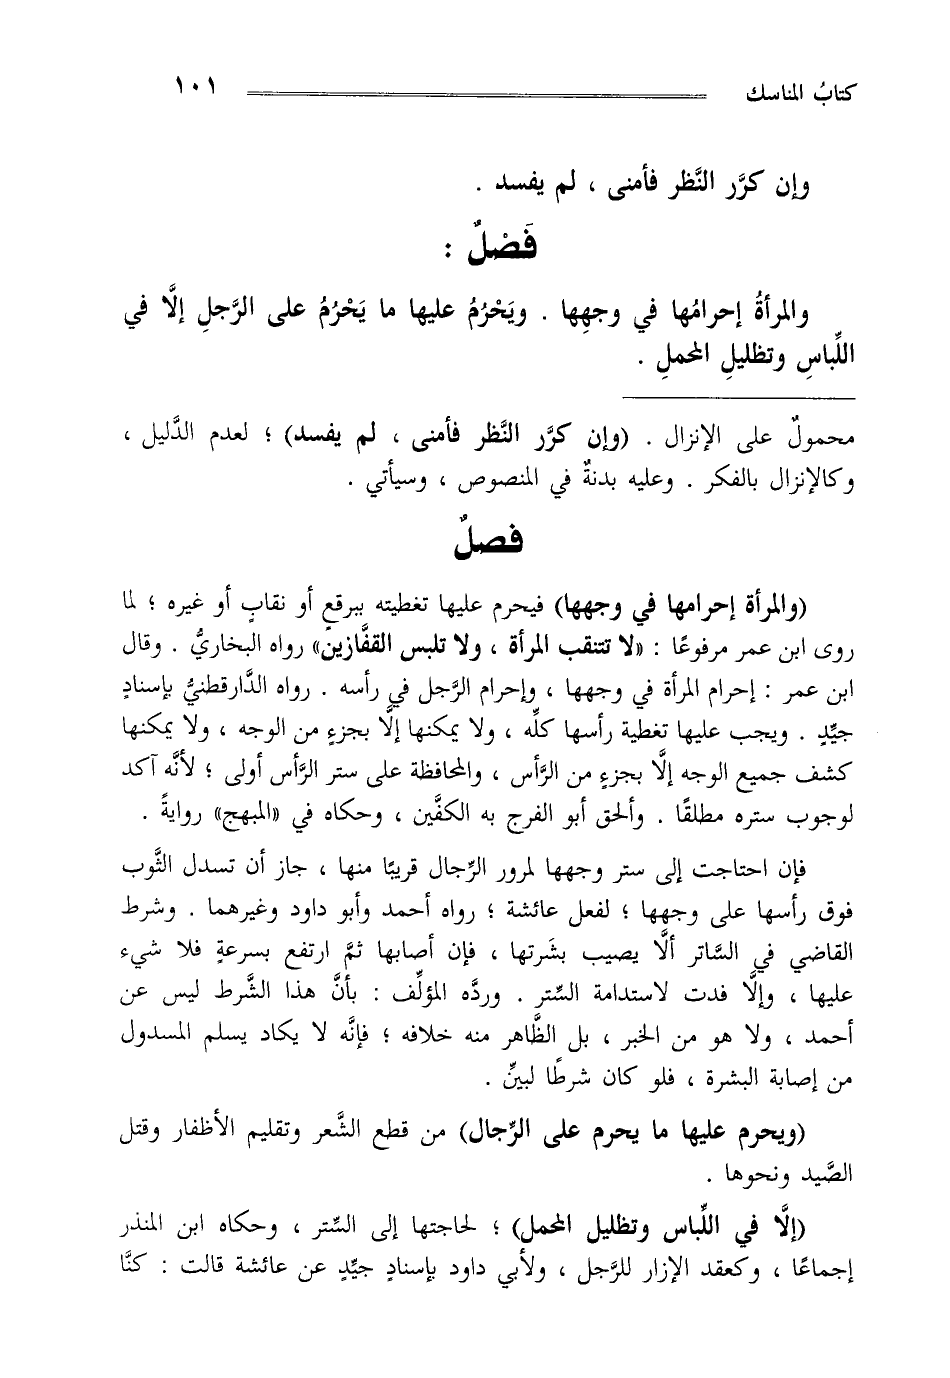 كتابُ المناسك ١٠١
وإن كرَّر النَّظر فأمنى ، لم يفسد .
فَصْلٌ :
والمرأةُ إحرامُها في وجهِها . ويَحْرُمُ عليها ما يَحْرُمُ على الرَّجلِ إلَّا في
اللِّباسِ وتظليلِ المحملِ .
محمولٌ على الإنزال . (وإن كرَّر النَّظر فأمنى ، لم يفسد) ؛ لعدم الدَّليل ،
وكالإنزال بالفكر . وعليه بدنةٌ في المنصوص ، وسيأتي .
فصلٌ
(والمرأة إحرامها في وجهها) فيحرم عليها تغطيته ببرقعٍ أو نقابٍ أو غيره ؛ لما
روى ابن عمر مرفوعًا : «لا تتنقب المرأة ، ولا تلبس القفَّازين» رواه البخاريُّ . وقال
ابن عمر : إحرام المرأة في وجهها ، وإحرام الرَّجل في رأسه . رواه الدَّارقطنيُّ بإسنادٍ
جيِّدٍ . ويجب عليها تغطية رأسها كلِّه ، ولا يمكنها إلَّا بجزءٍ من الوجه ، ولا يمكنها
كشف جميع الوجه إلَّا بجزءٍ من الرَّأس ، والمحافظة على ستر الرَّأس أولى ؛ لأنَّه آكد
لوجوب ستره مطلقًا . وألحق أبو الفرج به الكفَّين ، وحكاه في «المبهج» روايةً .
فإن احتاجت إلى ستر وجهها لمرور الرِّجال قريبًا منها ، جاز أن تسدل الثَّوب
فوق رأسها على وجهها ؛ لفعل عائشة ؛ رواه أحمد وأبو داود وغيرهما . وشرط
القاضي في السَّاتر ألَّا يصيب بشَرتها ، فإن أصابها ثمَّ ارتفع بسرعةٍ فلا شيء
عليها ، وإلَّا فدت لاستدامة السِّتر . وردَّه المؤلِّف : بأنَّ هذا الشَّرط ليس عن
أحمد ، ولا هو من الخبر ، بل الظَّاهر منه خلافه ؛ فإنَّه لا يكاد يسلم المسدول
من إصابة البشرة ، فلو كان شرطًا لبيِّن .
(ويحرم عليها ما يحرم على الرِّجال) من قطع الشَّعر وتقليم الأظفار وقتل
الصَّيد ونحوها .
(إلَّا في اللِّباس وتظليل المحمل) ؛ لحاجتها إلى السِّتر ، وحكاه ابن المنذر
إجماعًا ، وكعقد الإزار للرَّجل ، ولأبي داود بإسنادٍ جيِّدٍ عن عائشة قالت : كنَّا